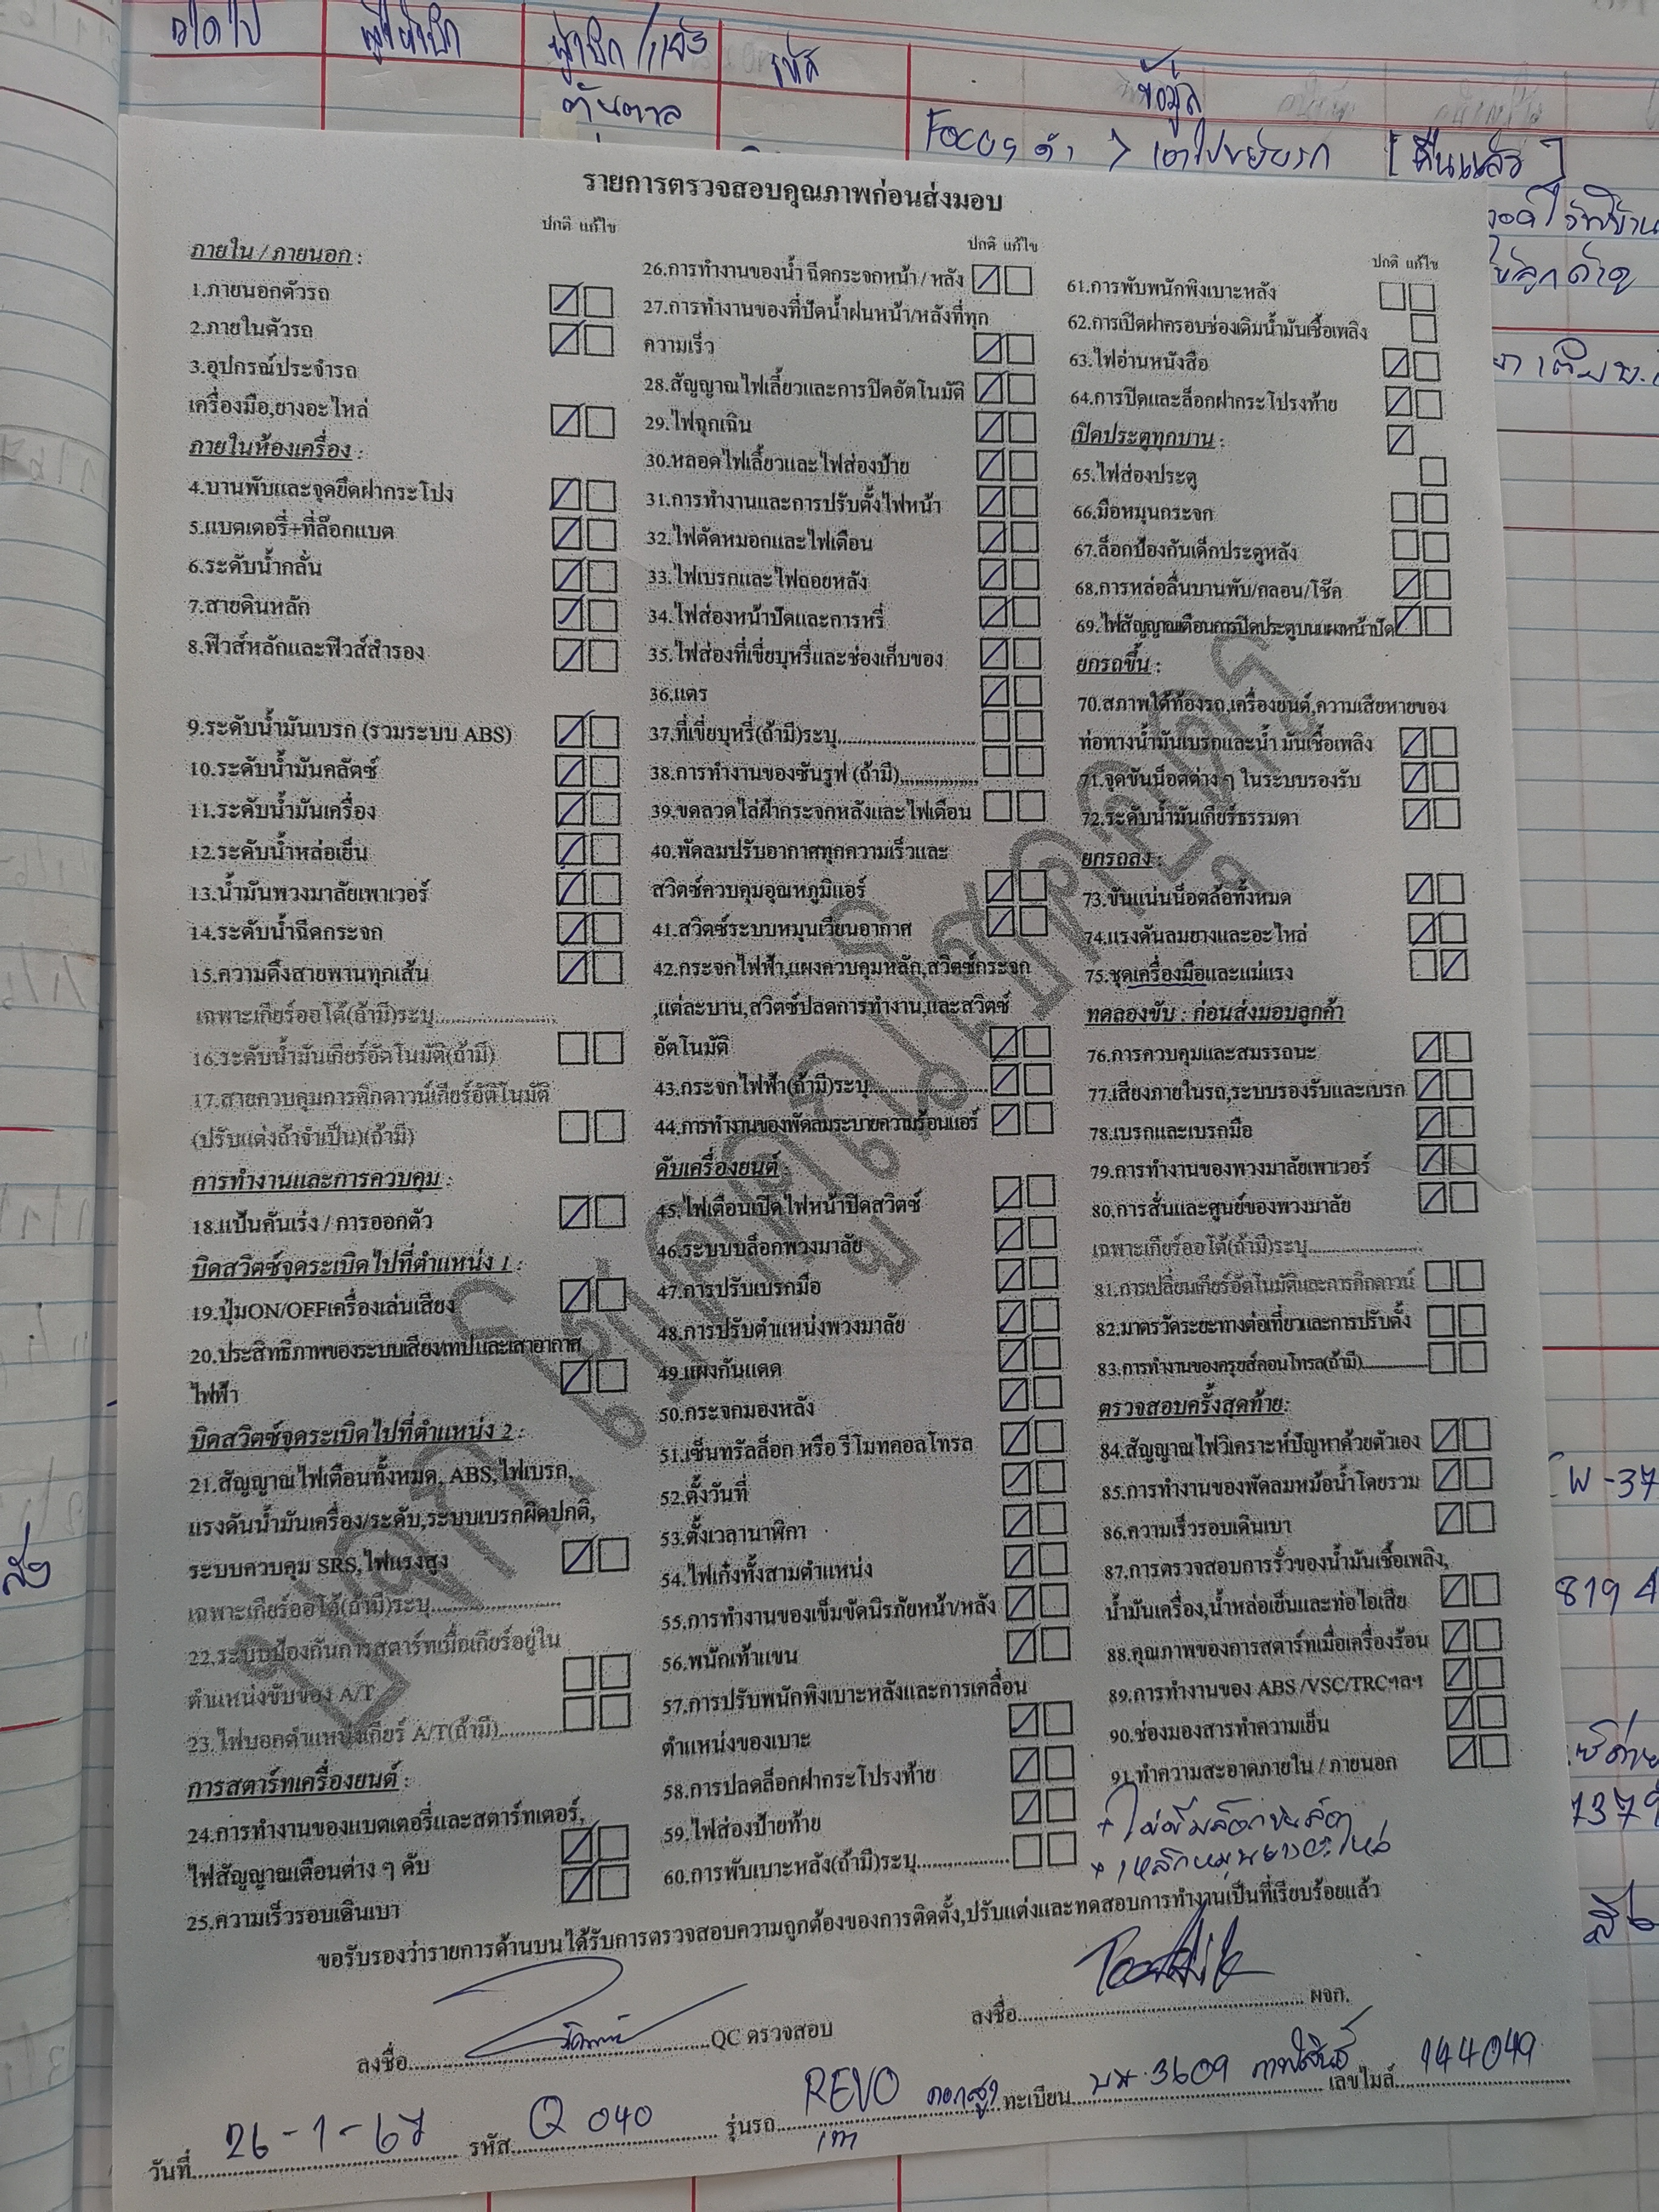 ผู้เบิก/แจ้ง
รหัส
ข้อมูล
[คืนแล้ว]
รายการตรวจสอบคุณภาพก่อนส่งมอบ
ปกติ แก้ไข
ภายใน / ภายนอก :
1.ภายนอกตัวรถ
2.ภายในตัวรถ
3.อุปกรณ์ประจำรถ
เครื่องมือ,ยางอะไหล่
ภายในห้องเครื่อง :
4.บานพับและจุดยึดฝากระโปง
5.แบตเตอรี่+ที่ล๊อกแบต
6.ระดับน้ำกลั่น
7.สายดินหลัก
8.ฟิวส์หลักและฟิวส์สำรอง
9.ระดับน้ำมันเบรก (รวมระบบ ABS)
10.ระดับน้ำมันคลัตซ์
11.ระดับน้ำมันเครื่อง
12.ระดับน้ำหล่อเย็น
13.น้ำมันพวงมาลัยเพาเวอร์
14.ระดับน้ำฉีดกระจก
15.ความตึงสายพานทุกเส้น
เฉพาะเกียร์ออโต้(ถ้ามี)ระบุ..............................
16.ระดับน้ำมันเกียร์อัตโนมัติ(ถ้ามี)
17.สายควบคุมการคิกดาวน์เกียร์อัติโนมัติ
(ปรับแต่งถ้าจำเป็น)(ถ้ามี)
การทำงานและการควบคุม :
18.แป้นคันเร่ง / การออกตัว
บิดสวิตซ์จุดระเบิดไปที่ตำแหน่ง 1 :
19.ปุ่มON/OFFเครื่องเล่นเสียง
20.ประสิทธิภาพของระบบเสียงเทปและเสาอากาศ
ไฟฟ้า
บิดสวิตซ์จุดระเบิดไปที่ตำแหน่ง 2 :
21.สัญญาณไฟเตือนทั้งหมด, ABS,ไฟเบรก,
แรงดันน้ำมันเครื่อง/ระดับ,ระบบเบรกผิดปกติ,
ระบบควบคุม SRS,ไฟแรงสูง
เฉพาะเกียร์ออโต้(ถ้ามี)ระบุ..............................
22.ระบบป้องกันการสตาร์ทเมื่อเกียร์อยู่ใน
ตำแหน่งขับของ A/T
23.ไฟบอกตำแหน่งเกียร์ A/T(ถ้ามี)..............
การสตาร์ทเครื่องยนต์ :
24.การทำงานของแบตเตอรี่และสตาร์ทเตอร์,
ไฟสัญญาณเตือนต่าง ๆ ดับ
25.ความเร็วรอบเดินเบา
ปกติ แก้ไข
26.การทำงานของน้ำ ฉีดกระจกหน้า / หลัง
27.การทำงานของที่ปัดน้ำฝนหน้า/หลังที่ทุก
ความเร็ว
28.สัญญาณไฟเลี้ยวและการปิดอัตโนมัติ
29.ไฟฉุกเฉิน
30.หลอดไฟเลี้ยวและไฟส่องป้าย
31.การทำงานและการปรับตั้งไฟหน้า
32.ไฟตัดหมอกและไฟเตือน
33.ไฟเบรกและไฟถอยหลัง
34.ไฟส่องหน้าปัดและการหรี่
35.ไฟส่องที่เขี่ยบุหรี่และช่องเก็บของ
36.แตร
37.ที่เขี่ยบุหรี่(ถ้ามี)ระบุ..............................
38.การทำงานของซันรูฟ (ถ้ามี)..................
39.ขดลวดไล่ฝ้ากระจกหลังและไฟเตือน
40.พัดลมปรับอากาศทุกความเร็วและ
สวิตซ์ควบคุมอุณหภูมิแอร์
41.สวิตซ์ระบบหมุนเวียนอากาศ
42.กระจกไฟฟ้า,แผงควบคุมหลัก,สวิตซ์กระจก
,แต่ละบาน,สวิตซ์ปลดการทำงาน,และสวิตซ์
อัตโนมัติ
43.กระจกไฟฟ้า(ถ้ามี)ระบุ..........................
44.การทำงานของพัดลมระบายความร้อนแอร์
ดับเครื่องยนต์ :
45.ไฟเตือนเปิดไฟหน้าปิดสวิตซ์
46.ระบบบล็อกพวงมาลัย
47.การปรับเบรกมือ
48.การปรับตำแหน่งพวงมาลัย
49.แผงกันแดด
50.กระจกมองหลัง
51.เซ็นทรัลล็อก หรือ รีโมทคอลโทรล
52.ตั้งวันที่
53.ตั้งเวลานาฬิกา
54.ไฟเก๋งทั้งสามตำแหน่ง
55.การทำงานของเข็มขัดนิรภัยหน้า/หลัง
56.พนักเท้าแขน
57.การปรับพนักพิงเบาะหลังและการเคลื่อน
ตำแหน่งของเบาะ
58.การปลดล็อกฝากระโปรงท้าย
59.ไฟส่องป้ายท้าย
60.การพับเบาะหลัง(ถ้ามี)ระบุ....................
ปกติ แก้ไข
61.การพับพนักพิงเบาะหลัง
62.การเปิดฝาครอบช่องเติมน้ำมันเชื้อเพลิง
63.ไฟอ่านหนังสือ
64.การปิดและล็อกฝากระโปรงท้าย
เปิดประตูทุกบาน :
65.ไฟส่องประตู
66.มือหมุนกระจก
67.ล็อกป้องกันเด็กประตูหลัง
68.การหล่อลื่นบานพับ/กลอน/โช๊ค
69.ไฟสัญญาณเตือนการปิดประตูบนแผงหน้าปัด
ยกรถขึ้น :
70.สภาพใต้ท้องรถ,เครื่องยนต์,ความเสียหายของ
ท่อทางน้ำมันเบรกและน้ำ มันเชื้อเพลิง
71.จุดขันน็อตต่าง ๆ ในระบบรองรับ
72.ระดับน้ำมันเกียร์ธรรมดา
ยกรถลง :
73.ขันแน่นน็อตล้อทั้งหมด
74.แรงดันลมยางและอะไหล่
75.ชุดเครื่องมือและแม่แรง
ทดลองขับ : ก่อนส่งมอบลูกค้า
76.การควบคุมและสมรรถนะ
77.เสียงภายในรถ,ระบบรองรับและเบรก
78.เบรกและเบรกมือ
79.การทำงานของพวงมาลัยเพาเวอร์
80.การสั่นและศูนย์ของพวงมาลัย
เฉพาะเกียร์ออโต้(ถ้ามี)ระบุ..........................
81.การเปลี่ยนเกียร์อัตโนมัติและการคิกดาวน์
82.มาตรวัดระยะทางต่อเที่ยวและการปรับตั้ง
83.การทำงานของครุยส์คอนโทรล(ถ้ามี)..............
ตรวจสอบครั้งสุดท้าย:
84.สัญญาณไฟวิเคราะห์ปัญหาด้วยตัวเอง
85.การทำงานของพัดลมหม้อน้ำโดยรวม
86.ความเร็วรอบเดินเบา
87.การตรวจสอบการรั่วของน้ำมันเชื้อเพลิง,
น้ำมันเครื่อง,น้ำหล่อเย็นและท่อไอเสีย
88.คุณภาพของการสตาร์ทเมื่อเครื่องร้อน
89.การทำงานของ ABS /VSC/TRCฯลฯ
90.ช่องมองสารทำความเย็น
91.ทำความสะอาดภายใน / ภายนอก
+ ไม่มีบล็อกขันล้อ
+ เหล็กหมุนยางอะไหล่
ขอรับรองว่ารายการด้านบนได้รับการตรวจสอบความถูกต้องของการติดตั้ง,ปรับแต่งและทดสอบการทำงานเป็นที่เรียบร้อยแล้ว
ลงชื่อ..................................................QC ตรวจสอบ
ลงชื่อ.................................................. ผจก.
วันที่ 26-1-67 รหัส Q 040 รุ่นรถ REVO ทะเบียน บม.3609 กาฬสินธุ์ เลขไมล์ 144049
เทา
8194